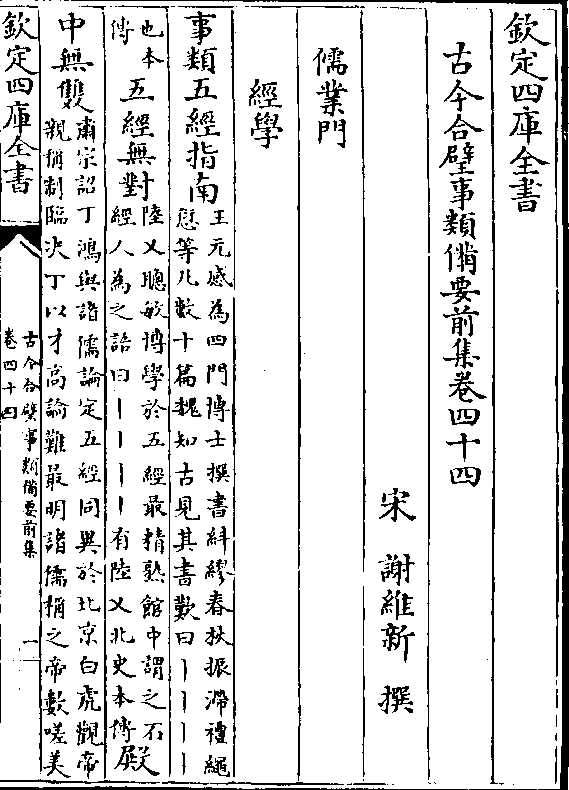 欽定四庫全書
古今合璧事類備要前集卷四十四
宋 謝維新 撰
儒業門
經學
事類五經指南王元感為四門博士撰書糾繆春秋振滯禮繩
愆等凡數十篇魏知古見其書歎曰丨丨丨丨
也本
傳
五經無對陸乂聰敏博學於五經最精熟館中謂之石
經人為之語曰丨丨丨丨有陸乂北史本傳
殿
中無雙肅宗詔丁鴻與諸儒論定五經同異於北京白虎觀帝
親稱制臨決丁以才高論難最明諸儒稱之帝數嗟美
欽定四庫全書
古今合璧事類備要前集
卷四十四
一